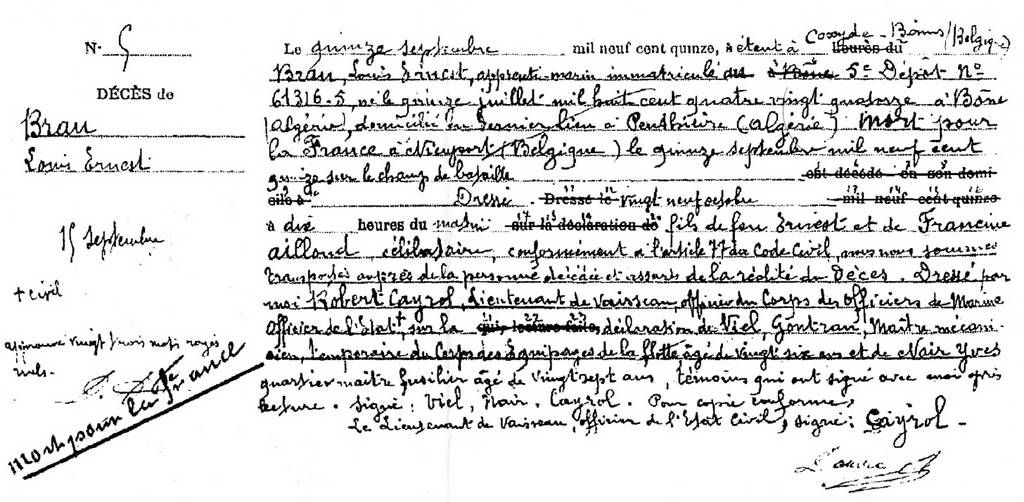 N° 5
DÉCÈS de
Brau
Louis Ernest
15 Septembre
+ Civil
approuvé vingt trois mots rayés
nuls.
Mort pour la France
Le quinze septembre mil neuf cent quinze, à étant à Coxyde-Bains (Belgique)
heures du
Brau, Louis Ernest, apprenti-marin immatriculé au à Bône 5e Dépôt No
61316-5, né le quinze juillet mil huit cent quatre vingt quatorze à Bône
(Algérie), domicilié en dernier lieu à Penthièvre (Algérie) Mort pour
la France à Nieuport (Belgique) le quinze septembre mil neuf cent
quinze sur le champ de bataille est décédé en son domi
cile à Dressé Dressé le vingt neuf octobre mil neuf cent quinze
à dix heures du matin sur la déclaration de fils de feu Ernest et de Francine
Aillaud célibataire, conformément à l'article 77 du Code Civil, nous nous sommes
transportés auprès de la personne décédée et assurés de la réalité du Décès. Dressé par
moi Robert Cayrol, Lieutenant de Vaisseau, officier du Corps des Officiers de Marine
Officier de l'Etat, sur la qui, lecture faite, déclaration de Viel, Gontran, Maître mécani-
cien, temporaire du Corps des Equipages de la flotte âgé de vingt six ans et de Nair Yves
quartier maître fusilier âgé de vingt sept ans, témoins qui ont signé avec moi après
lecture. Signé: Viel, Nair. Cayrol. Pour copie conforme,
Le Lieutenant de Vaisseau, officier de l'Etat Civil, signé: Cayrol -